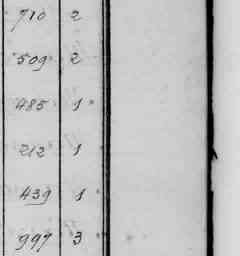 710 2
509 2
485 1
212 1
439 1
997 3